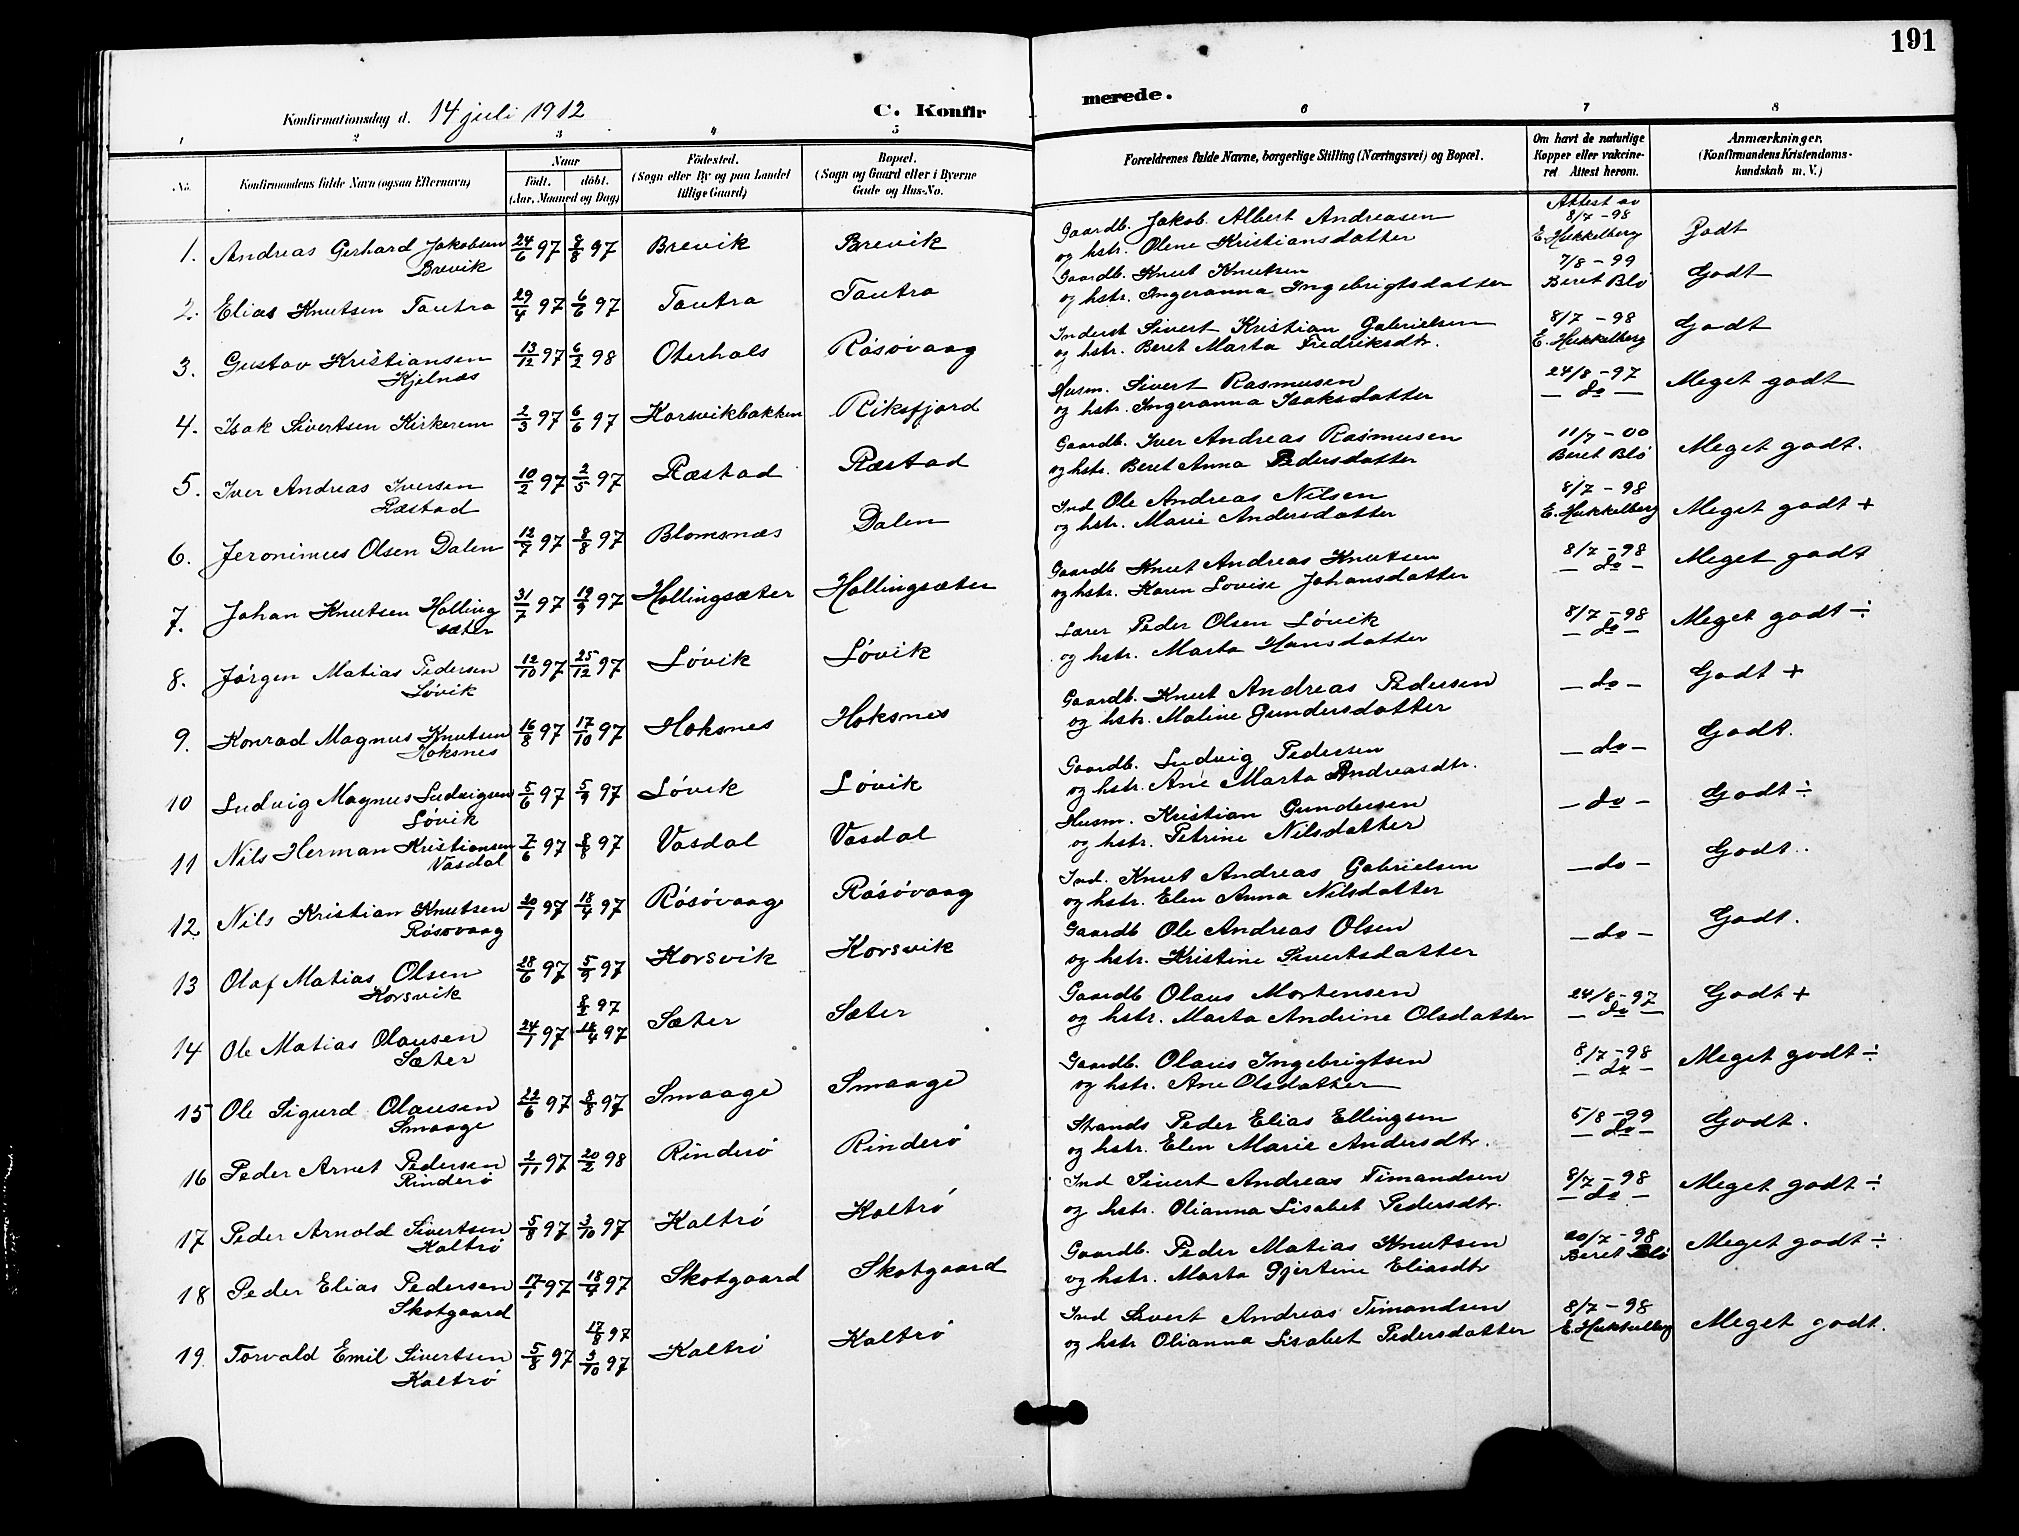 191
Konfirmationsdag d. 14 juli 1912
C. Konfir
merede.
1 2 3 4 5 6 7 8
No.
Konfirmandens fulde Navn (ogsaa Efternavn)
Naar
født. døbt.
(Aar, Maaned og Dag)
Fødested.
(Sogn eller By og paa Landet
tillige Gaard)
Bopæl.
(Sogn og Gaard eller i Byerne
Gade og Hus-No.
Forældrenes fulde Navne, borgerlige Stilling (Næringsvei) og Bopæl.
Om havt de naturlige
Kopper eller vakcine-
ret Attest herom.
Anmærkninger.
(Konfirmandens Kristendoms-
kundskab m. V.)
1. Andreas Gerhard Jakobsen 24/6 97 8/8 97 Brevik Brevik Gaardb. Jakob Albert Andreasen Attest av 8/7-98 Godt
Brevik og hstr. Oline Kristiansdatter E. Hukkelberg
2. Elias Knutsen Tautra 29/4 97 6/6 97 Tautra Tautra Gaardb. Knut Knutsen 7/8-99 Godt
og hstr. Ingeranna Ingebrigtsdatter Beret Blø
3. Gustav Kristiansen 13/12 97 6/2 98 Oterhals Røsøvaag Inderst Sivert Kristian Gabrielsen 8/7-98 Godt
Kjelnæs og hstr. Beret Marta Fredriksdtr. E. Hukkelberg
4. Isak Sivertsen Kirkerem 2/3 97 6/6 97 Korsvikbakken Riksfjord Husm. Sivert Rasmusen 24/8-97 Meget godt
og hstr. Ingeranna Isaksdatter — do —
5. Iver Andreas Iversen 10/2 97 2/5 97 Ræstad Ræstad Gaardb. Iver Andreas Rasmusen 11/7-00 Meget godt.
Ræstad og hstr. Beret Anna Pedersdatter Beret Blø
6. Jeronimus Olsen Dalen 12/7 97 8/8 97 Blomsnæs Dalen Ind Ole Andreas Nilsen 8/7-98 Meget godt +
og hstr. Marie Andersdatter E. Hukkelberg
7. Johan Knutsen Holling 31/7 97 19/9 97 Hollingsæter Hollingsæter Gaardb Knut Andreas Knutsen 8/7-98 Meget godt
sæter og hstr. Karen Lovise Johansdatter — do —
8. Jørgen Matias Pedersen 12/10 97 25/12 97 Løvik Løvik Lærer Peder Olsen Løvik 8/7-98 Meget godt ÷
Løvik og hstr. Marta Hansdatter — do —
9. Konrad Magnus Knutsen 16/8 97 17/10 97 Hoksnes Hoksnes Gaardb. Knut Andreas Pedersen — do — Godt +
Hoksnes og hstr. Maline Gundersdatter
10 Ludvig Magnus Ludvigsen 5/6 97 5/9 97 Løvik Løvik Gaardb. Ludvig Pedersen — do — Godt.
Løvik og hstr. Ane Marta Andreasdtr.
11 Nils Herman Kristiansen 7/6 97 8/8 97 Vasdal Vasdal Husm. Kristian Gundersen — do — Godt ÷
Vasdal og hstr. Petrine Nilsdatter
12 Nils Kristian Knutsen 20/1 97 18/4 97 Røsøvaag Røsøvaag Ind. Knut Andreas Gabrielsen — do — Godt.
Røsøvaag og hstr. Elen Anna Nilsdatter
13 Olaf Matias Olsen 28/6 97 5/9 97 Korsvik Korsvik Gaardb Ole Andreas Olsen — do — Godt.
Korsvik og hstr. Kristine Sivertsdatter
14 Ole Matias Olausen 24/1 97 8/2 97 18/4 97 Sæter Sæter Gaardb Olaus Mortensen 24/8-97 Godt +
Sæter og hstr. Marta Andrine Olsdatter — do —
15 Ole Sigurd Olausen 22/6 97 8/8 97 Smaage Smaage Gaardb. Olaus Ingebrigtsen 8/7-98 Meget godt ÷
Smaage og hstr. Ane Olsdatter — do —
16 Peder Arnet Pedersen 2/11 97 20/2 98 Rinderø Rinderø Strands Peder Elias Ellingsen 5/8-99 Godt.
Rinderø og hstr. Elen Marie Andersdtr. — do —
17 Peder Arnold Sivertsen 5/8 97 3/10 97 Kaltrø Kaltrø Ind Sivert Andreas Timandsen 8/7-98 Meget godt ÷
Kaltrø og hstr. Olianna Lisabet Pedersdtr. — do —
18 Peder Elias Pedersen 17/1 97 18/4 97 Skotgaard Skotgaard Gaardb. Peder Matias Knutsen 20/7-98 Meget godt ÷
Skotgaard og hstr. Marta Gjertine Eliasdtr Beret Blø
19. Torvald Emil Sivertsen 5/8 97 17/8 97 3/10 97 Kaltrø Kaltrø Ind Sivert Andreas Timandsen 8/7-98 Meget godt.
Kaltrø og hstr Olianna Lisabet Pedersdatter E. Hukkelberg